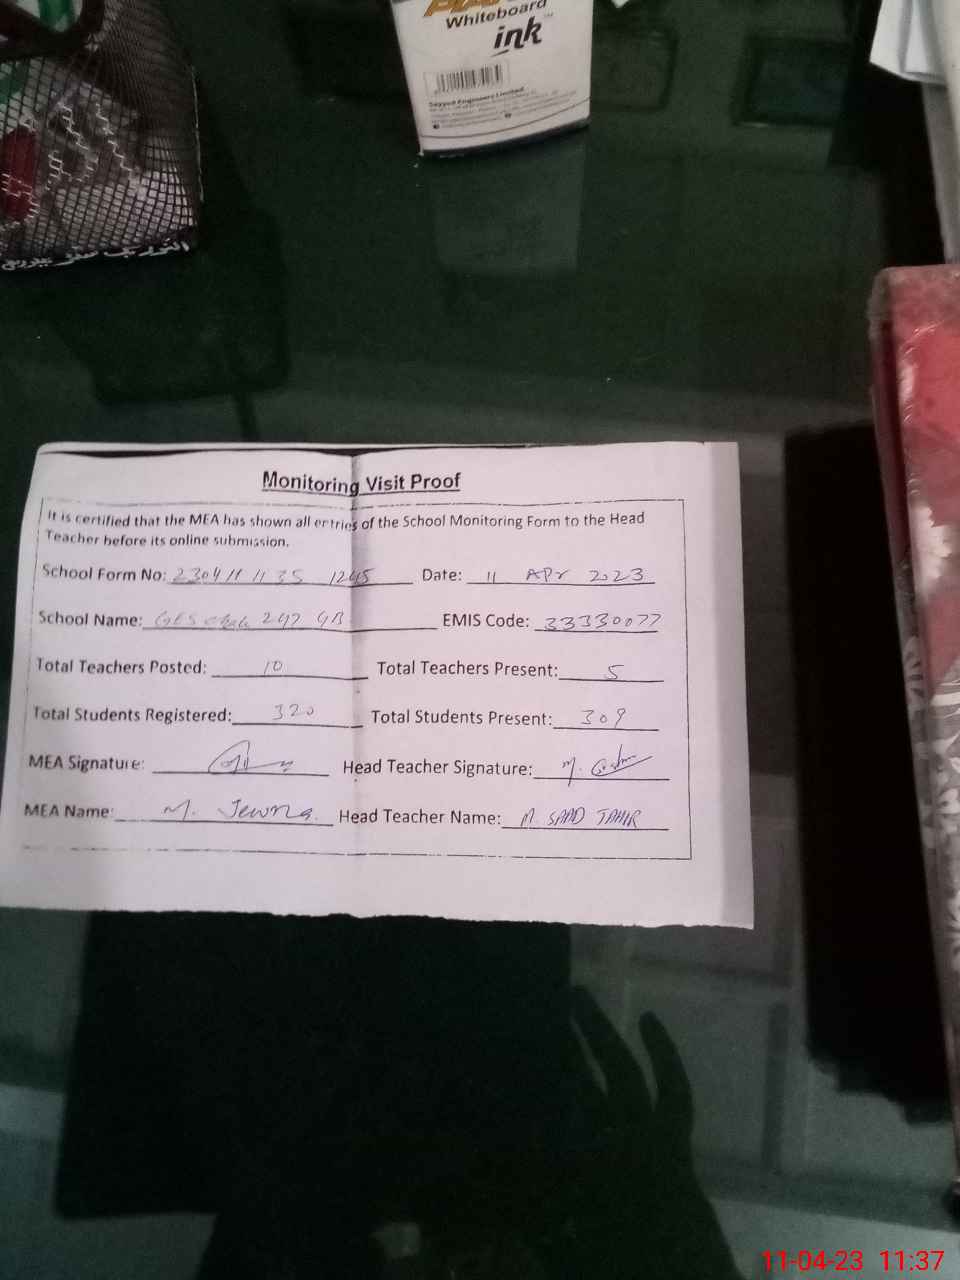 Whiteboard
ink
Sayyed Engineers Limited
Monitoring Visit Proof
It is certified that the MEA has shown all entries of the School Monitoring Form to the Head
Teacher before its online submission.
School Form No: Date: 11 APr 2023
School Name: 247 GB EMIS Code: 33330077
Total Teachers Posted: 10 Total Teachers Present: 5
Total Students Registered: 320 Total Students Present: 309
MEA Signature: Head Teacher Signature:
MEA Name: M. Head Teacher Name: M. SAAD TAHIR
11-04-23 11:37